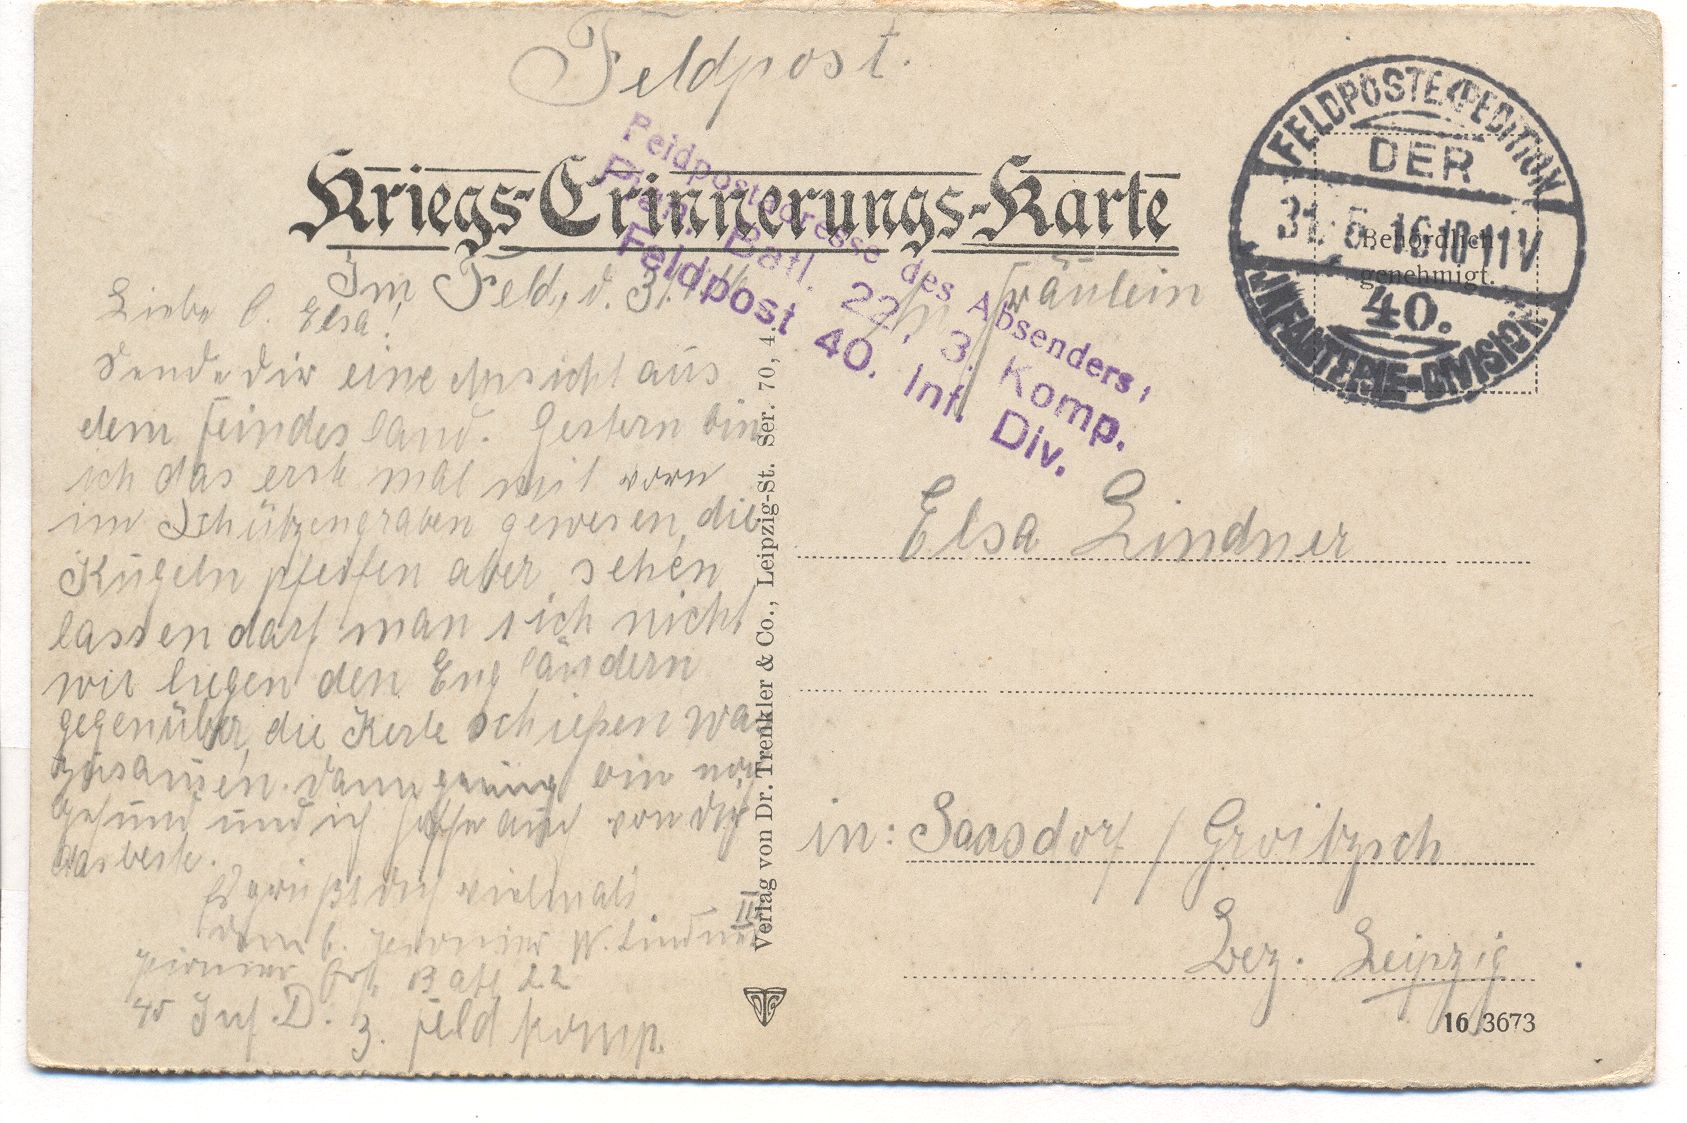 Feldpost.
Kriegs-Erinnerungs-Karte
Feldpostadresse des Absenders:
Pion. Batl. 22, 3. Komp.
Feldpost 40. Inf. Div.
FELDPOSTEXPEDITION
DER
31.5.16 10-11 V
40.
INFANTERIE-DIVISION
Behördlich
genehmigt.
Im Feld, d. 31.
Liebe C. Elsa!
Sende dir eine Ansicht aus
dem Feindesland. Gestern bin
ich das erste mal mit vorn
im Schützengraben gewesen, die
Kugeln pfeifen aber sehen
lassen darf man sich nicht
wir liegen den Engländern
gegenüber, die Kerle schießen was
zusamen. bin noch
gesund und ich hoffe auch von dir
das beste.
Es grüßt dich vielmals
dein C. Pionier W. Lindner
Pionier Batl 22 II
40 Inf. D. 3. Feld Komp.
Fräulein
Elsa Lindner
in: Saasdorf / Groitzsch
Bez. Leipzig
Verlag von Dr. Trenkler & Co., Leipzig-St. Ser. 70, 4.
16 3673